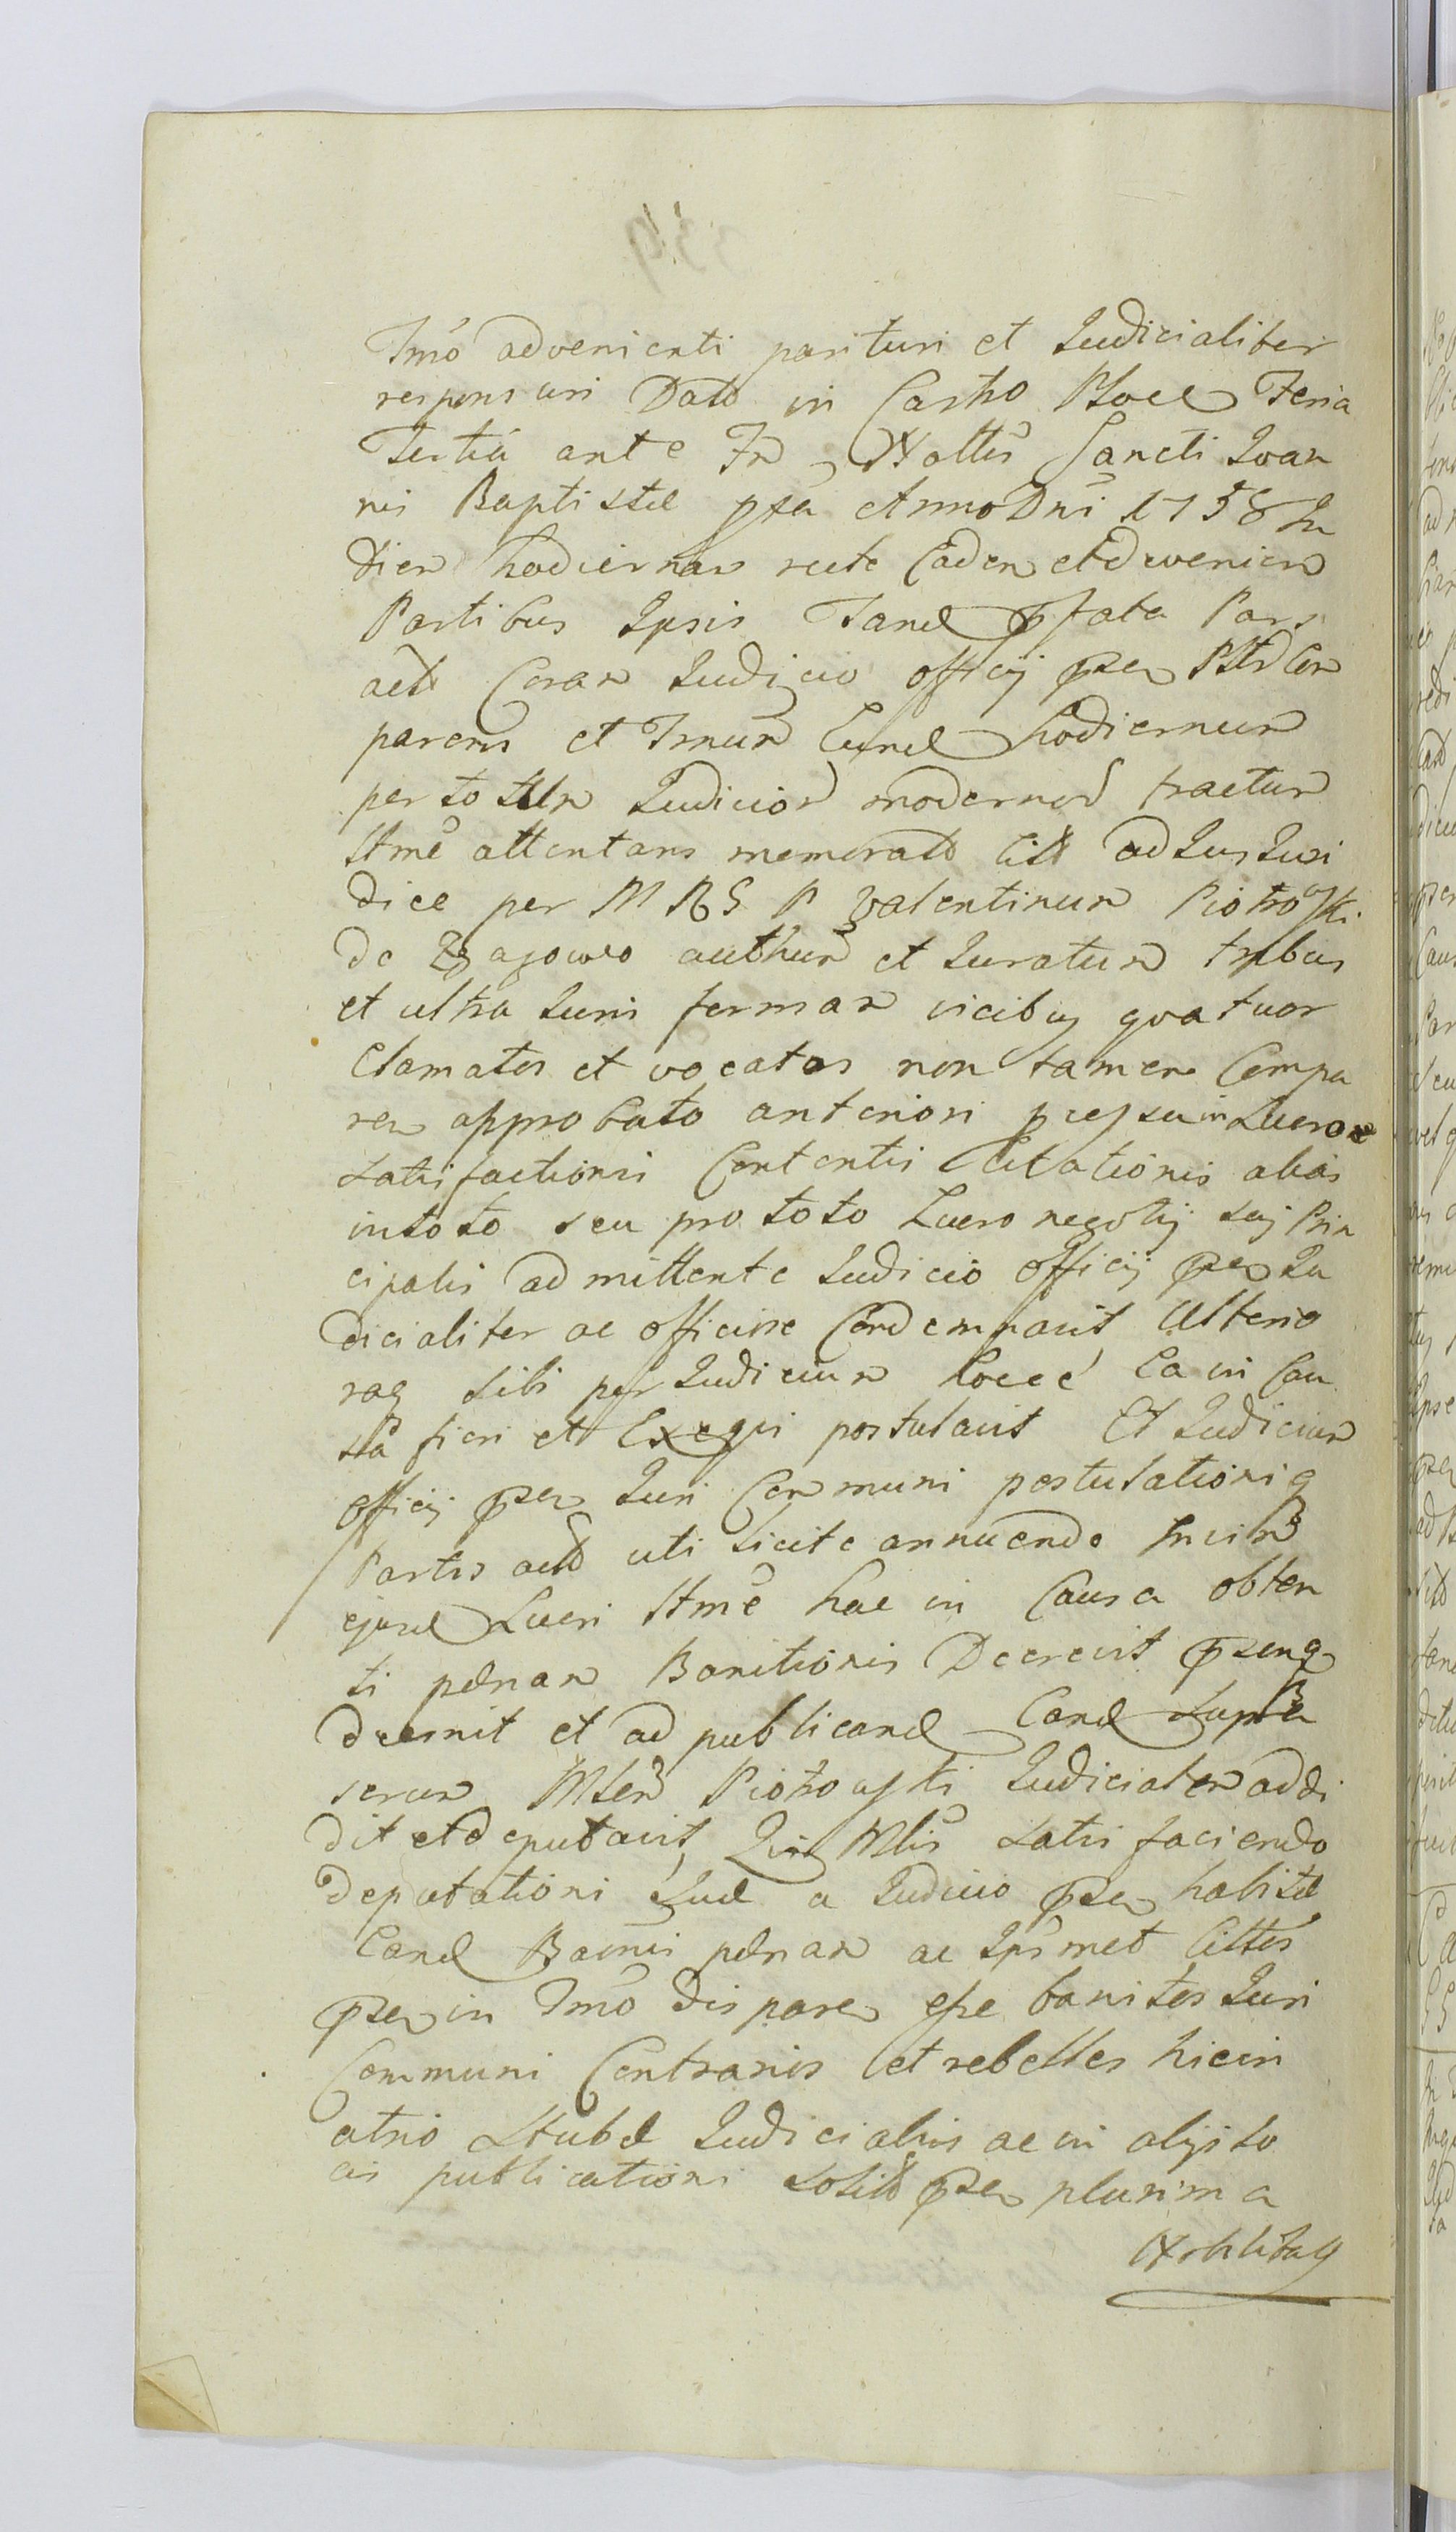 Tmõ advenienti parituri et Judicialiter
responsuri Datt in Castro Ploc Feria
Tertiâ ante Fr Nattis Sancti Joan
nis Baptistæ pta Anno Dni 1758 In
diem hodiernam recte Caden et deveniem
Partibus Ipsis Tand pfata Pars
act Coram Judicio officij pser Com
parens et Tmum Eund hodiernum
per totum Judicior modernor tractum
Ittme attentans memorat Citt ad Jus Juri
dice per M R S P Valentinum Piotrowski
de authum et Juratum tribus
et ultra Juris formam vicibus quatuor
Clamatos et vocatos non tamen Compa
ren approbato anteriori in Lucro
satisfactionis Contentis Citationis alias
in toto seu pro toto Lucro negotij sui Prin
cipalis admittente Judicio officij psen Ju
dicialiter ac officiose Condemnavit, Ulterio
raq sibi per Judicium hocce Ea in Cau
sa fieri et Exequi postulavit Et Judicium
officij psen Juri Communi postulationiq
Partis act uti licite annuendo In vim
ejusd Lucri Ittme hac in Causa obten
ti pœnam Banitionis Decrevit psenq
decernit et ad publicand Eand supra
Mlem Piotrowski Judicialem addi
dit et deputavit, Qui Mlis satisfaciendo
deputationi suæ a Judicio psen habitæ
Eand Bannis pœnam ac Ipsmet Cittos
psen in Tmo dis paren esse banitos Juri
Communi Contrarios et rebelles hic in
atrio Stubæ Judicialis ac in alijs lo
cis publicationi solit psen plurima
Nobilitag